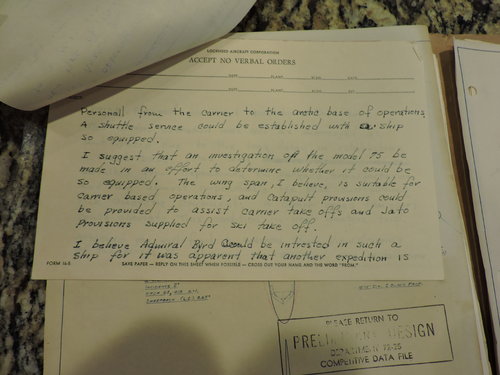 LOCKHEED AIRCRAFT CORPORATION
ACCEPT NO VERBAL ORDERS
DEPT. PLANT BLDG. DATE
DEPT. PLANT BLDG. EXT.
Personall from the carrier to the arctic base of operations.
A shuttle service could be established with a ship
so equipped.
I suggest that an investigation of the model 75 be
made in an effort to determine whether it could be
so equipped. The wing span, I believe, is suitable for
carrier based operations, and catapult provisions could
be provided to assist carrier take offs and Jato
provisions supplied for ski take off.
I believe Admiral Byrd would be intrested in such a
ship for it was apparent that another expedition is
FORM 16-5 SAVE PAPER — REPLY ON THIS SHEET WHEN POSSIBLE — CROSS OUT YOUR NAME AND THE WORD "FROM."
PLEASE RETURN TO
PRELIMINARY DESIGN
DEPARTMENT 72-25
COMPETITIVE DATA FILE